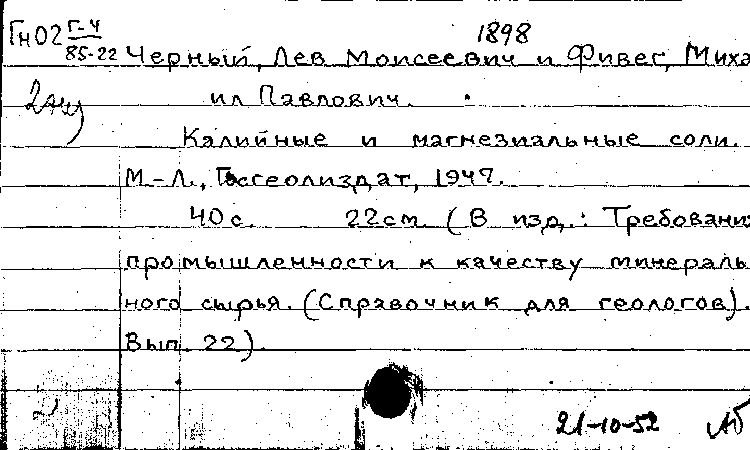 Гн02 Г-4 1898
85-22 Черный, Лев Моисеевич и Фивег, Миха
2 экз ил Павлович.
Калийные и магнезиальные соли.
М.-Л., Госгеолиздат, 1947.
40с. 22см. (В изд.: Требовани
промышленности к качеству минераль
ного сырья. (Справочник для геологов).
Вып. 22).
2
21-10-52 АБ